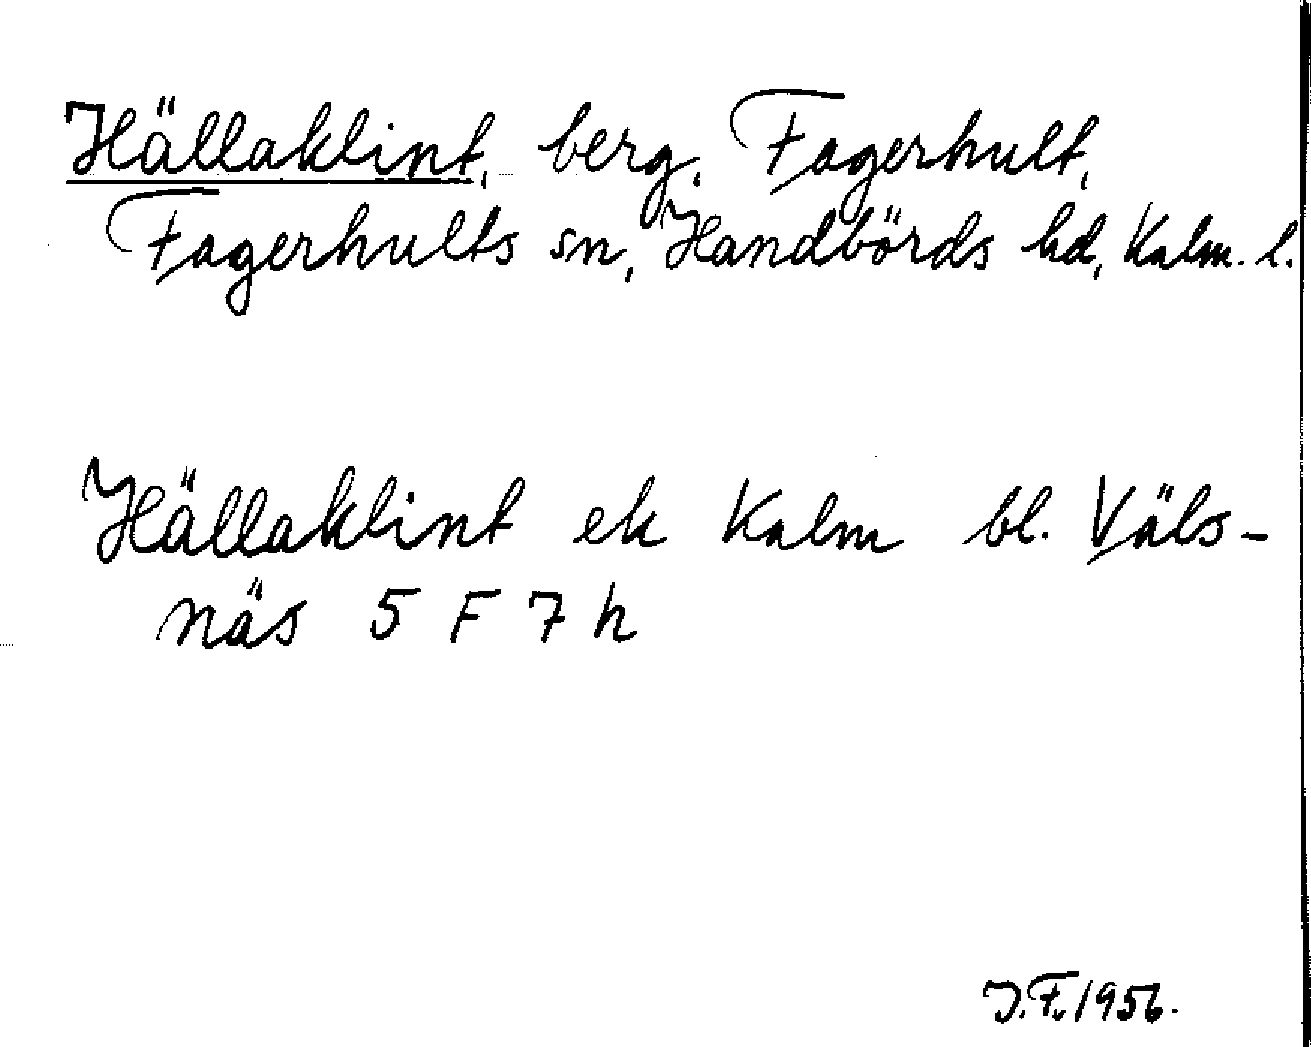 Hällaklint, berg, Fagerhult,
Fagerhults sn, Handbörds hd, Kalm. l.
Hällaklint ek Kalm bl. Väls-
näs 5 F 7 h
J.F. 1956.